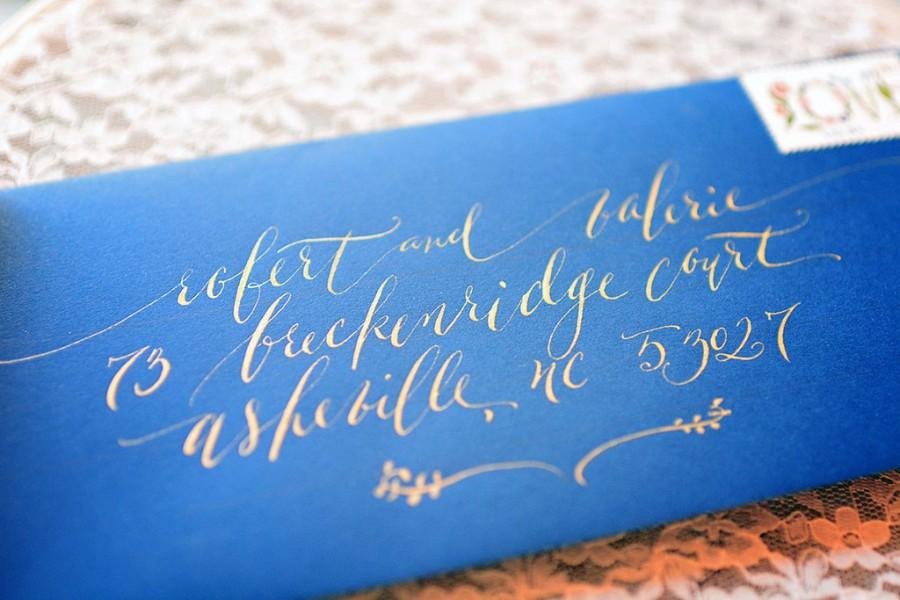 LOVE
robert and valerie
73 breckenridge court
asheville, nc 53027